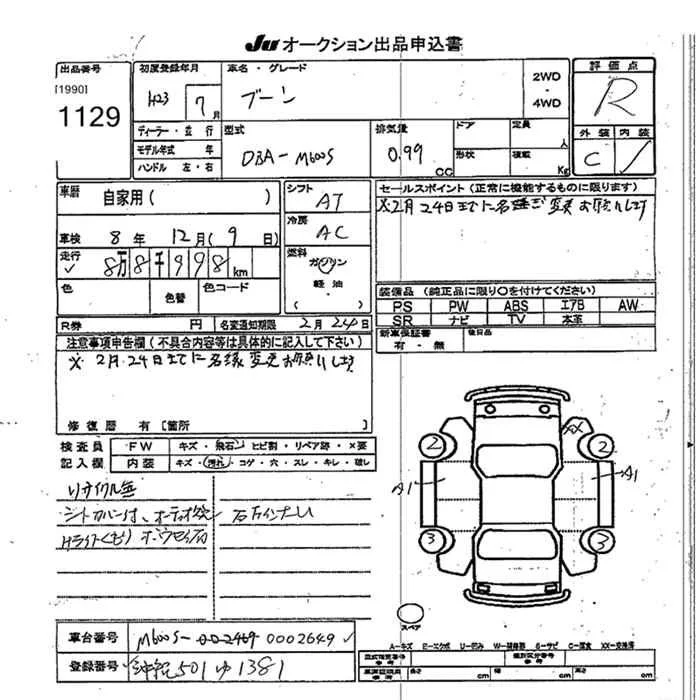 JU オークション出品申込書
出品番号
[1990]
1129
初度登録年月
H23 7月
車名・グレード
ブーン
2WD
・
4WD
評価点
R
外装 内装
C
ディーラー・並行
モデル年式 年
ハンドル 左・右
型式
DBA-M600S
排気量
0.99
CC
ドア
定員
人
形状
積載
Kg
車歴
自家用( )
シフト
AT
セールスポイント(正常に機能するものに限ります)
※2月24日までに名義変更お願いします
車検
8年 12月(9日)
冷房
AC
走行
8万8千998km
燃料
ガソリン
軽油・
( )
色
色替
色コード
装備品(純正品に限り○を付けてください)
PS PW ABS エアB AW
SR ナビ TV 本革
R券 円
名変通知期限 2月24日
新車保証書
有・無
後日品
注意事項申告欄(不具合内容等は具体的に記入して下さい)
※2月24日までに名義変更お願いします
修復歴 有[箇所 ]
検査員
記入欄
FW
キズ・飛石・ヒビ割・リペア跡・×要
内装
キズ・汚れ・コゲ・穴・スレ・キレ・破し
リサイクル無
シートカバー付、オーディオ欠
Hライトくもり
2
XX
2
A1
A1
3
3
スペア
車台番号
M600S-0002469 0002649
A-キズ E-エクボ U-凹み W-補修跡 S-サビ C-腐食 XX-交換済
登録番号
沖縄501ゆ1381
型式指定番号
参考
類別区分番号
参考
長さ cm 幅 cm 高さ cm